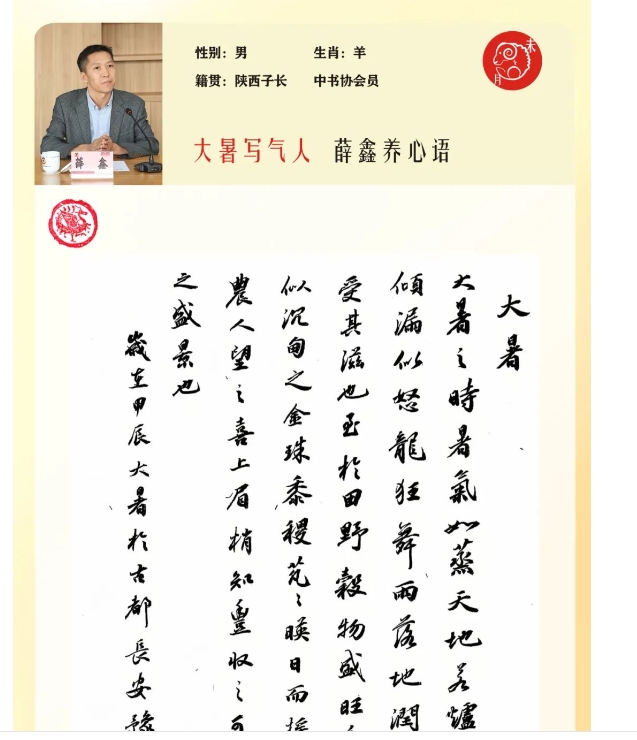 性别：男
生肖：羊
籍贯：陕西子长
中书协会员
未
月
薛鑫
大暑写气人 薛鑫养心语
大暑
大暑之時暑氣如蒸天地若爐
傾漏似怒龍狂舞雨落地潤
受其滋也至於田野穀物盛旺
似沉甸之金珠黍稷芃〻暎日而摇
農人望之喜上眉梢知豐收之可
之盛景也
歲在甲辰大暑於古都長安